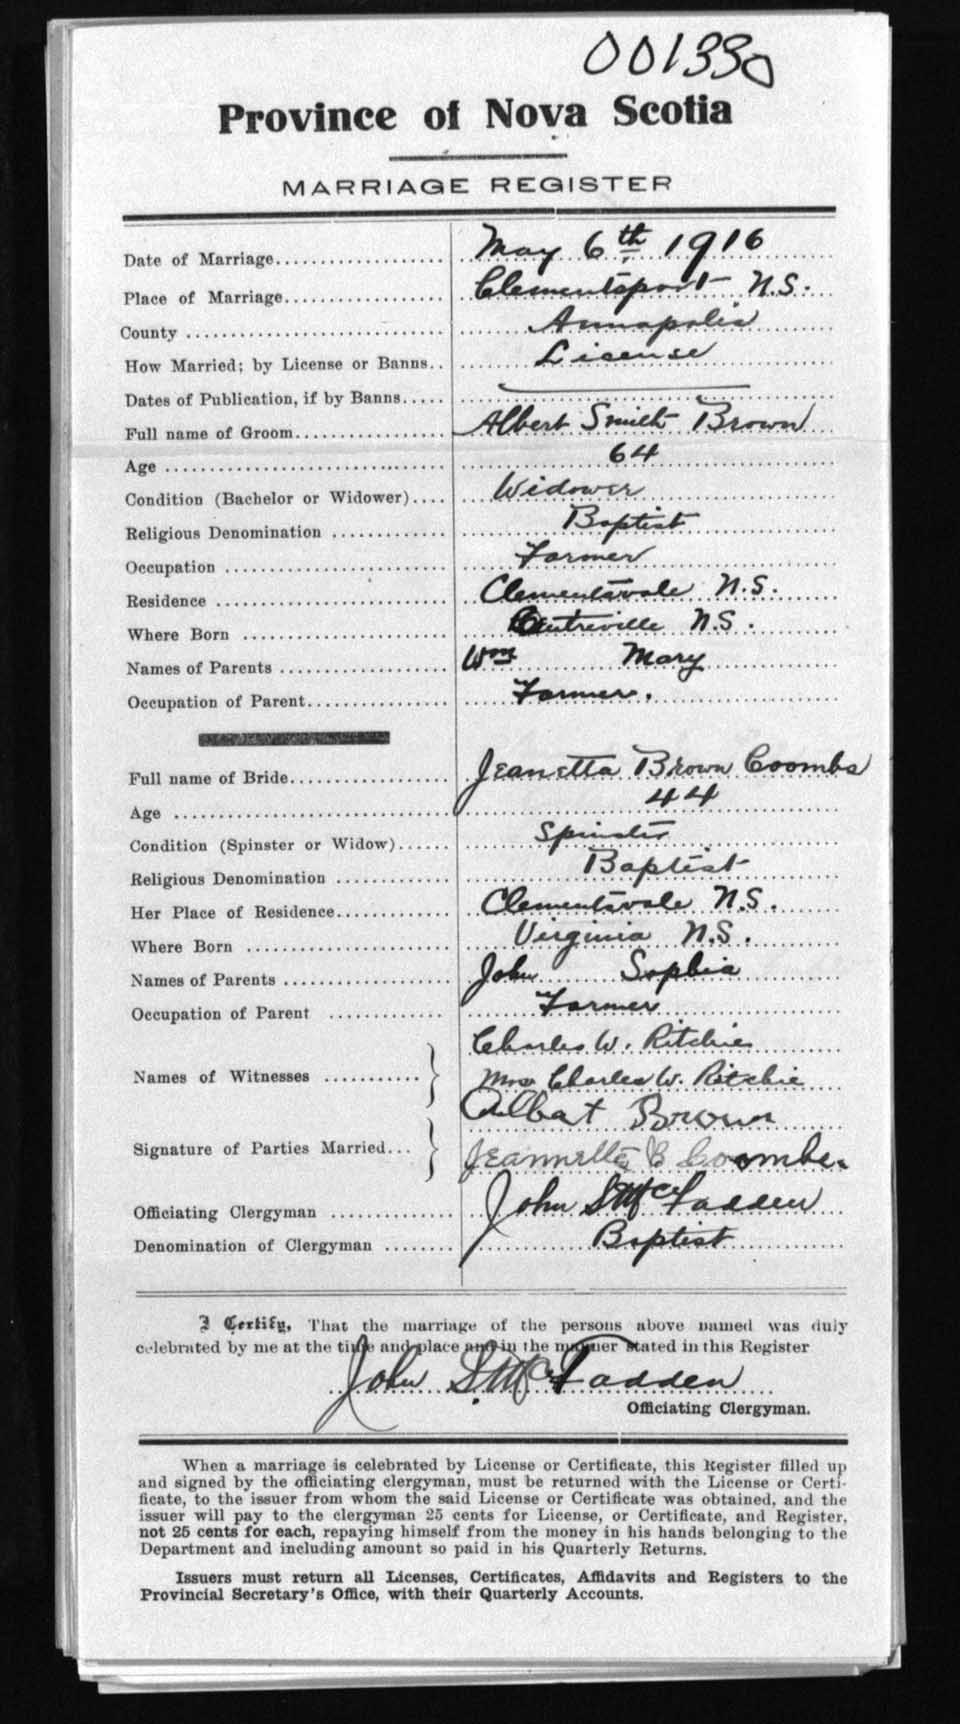 001330
Province of Nova Scotia
MARRIAGE REGISTER
Date of Marriage.................... May 6th 1916
Place of Marriage................... Clementsport N.S.
County ............................ Annapolis
How Married; by License or Banns.. License
Dates of Publication, if by Banns.....
Full name of Groom................. Albert Smith Brown
Age ............................... 64
Condition (Bachelor or Widower).... Widower
Religious Denomination ............. Baptist
Occupation ........................ Farmer
Residence ......................... Clementsvale N.S.
Where Born ....................... Centreville N.S.
Names of Parents ................... Wm Mary
Occupation of Parent................ Farmer.
Full name of Bride................... Jeanetta Brown Coombs
Age ............................... 44
Condition (Spinster or Widow)...... Spinster
Religious Denomination ............ Baptist
Her Place of Residence............. Clementsvale N.S.
Where Born ....................... Virginia N.S.
Names of Parents ................... John Sophia
Occupation of Parent .............. Farmer
Charles W. Ritchie
Names of Witnesses ........... Mrs Charles W. Ritchie
Albat Brown
Signature of Parties Married... Jeannette B Coombs.
Officiating Clergyman .............. John S McFadden
Denomination of Clergyman ........ Baptist
I Certify, That the marriage of the persons above named was duly
celebrated by me at the time and place and in the manner stated in this Register
John S. McFadden
Officiating Clergyman.
When a marriage is celebrated by License or Certificate, this Register filled up
and signed by the officiating clergyman, must be returned with the License or Certi-
ficate, to the issuer from whom the said License or Certificate was obtained, and the
issuer will pay to the clergyman 25 cents for License, or Certificate, and Register,
not 25 cents for each, repaying himself from the money in his hands belonging to the
Department and including amount so paid in his Quarterly Returns.
Issuers must return all Licenses, Certificates, Affidavits and Registers to the
Provincial Secretary's Office, with their Quarterly Accounts.